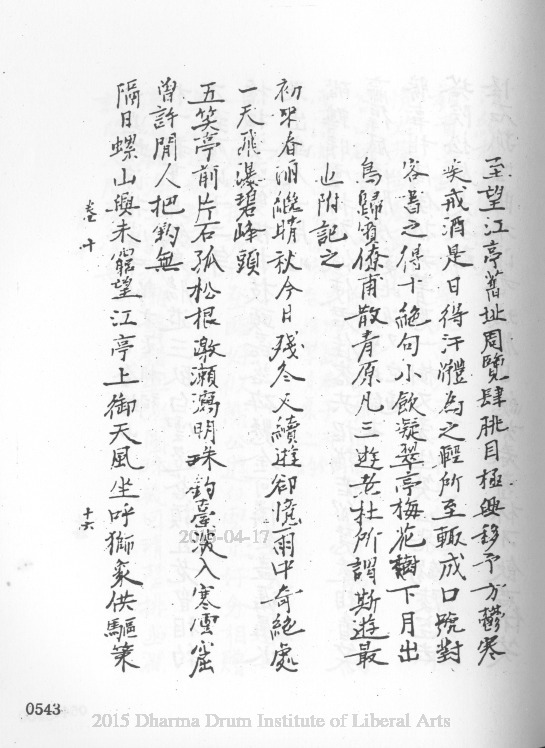 至望江亭舊址周覽肆眺目極興移予方鬱寒
疾戒酒是日得汗體為之輕所至輒成口號對
客書之得十絕句小飲凝翠亭梅花樹下月出
鳥歸賓僚甫散青原凡三遊老杜所謂斯遊最
也附記之
初來春雨繼晴秋今日殘冬又續遊卻憶雨中奇絕處
一天飛瀑碧峰頭
五笑亭前片石孤松根激瀨瀉明珠釣臺深入寒雲窟
曾許閒人把釣無
隔日螺山興未窮望江亭上御天風坐呼獅象供驅策
卷十
十六
2015-04-17
0543
2015 Dharma Drum Institute of Liberal Arts